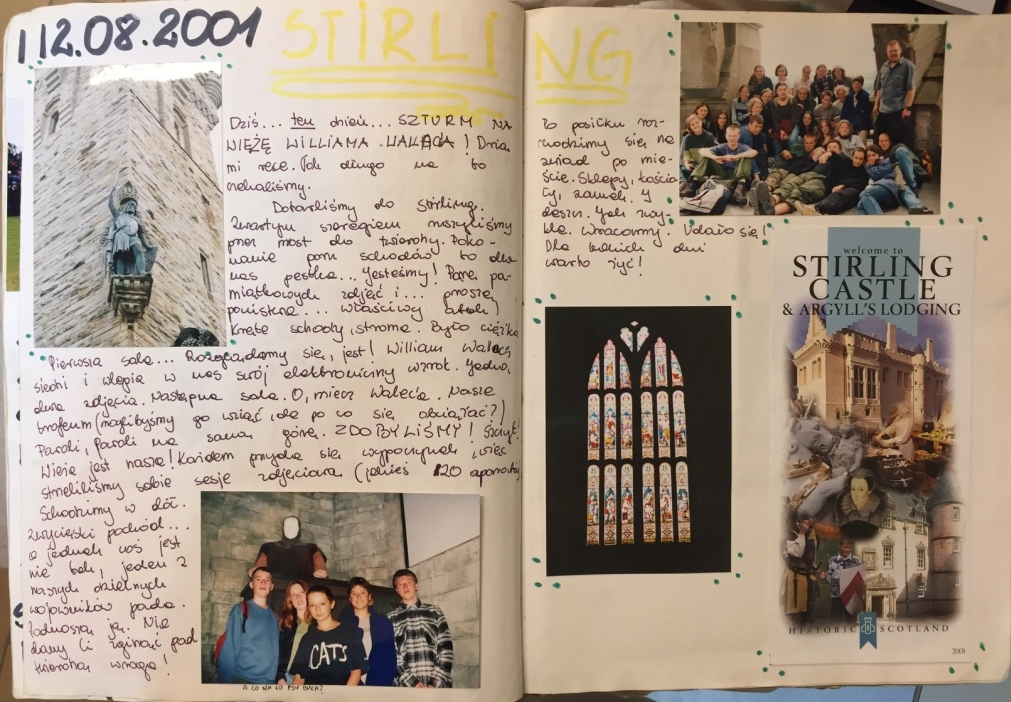 12.08.2001 STIRLING
Dziś... ten dzień... SZTURM NA
WIEŻĘ WILLIAMA WALACA! Drżą
mi ręce. Tak długo na to
czekaliśmy.
Dotarliśmy do Stirlingu.
Zwartym szeregiem ruszyliśmy
przez most do twierdzy. Poko-
nanie paru schodów to dla
nas pestka... Jesteśmy! Parę pa-
miątkowych zdjęć i... proszę
państwa... właściwy atak!
Kręte schody, strome. Było ciężko
Pierwsza sala... Rozglądamy się, jest! William Walace
siedzi i wlepia w nas swój elektroniczny wzrok. Jedno,
dwa zdjęcia. Następna sala. O, miecz Walece'a. Nasze
trofeum (moglibyśmy go wziąć, ale po co się obciążać?)
Paroli, Paroli na samą górę. ZDOBYLIŚMY! Szczyt!
Wieża jest nasza! Każdem przyda się wypoczynek więc
strzeliliśmy sobie sesję zdjęciową (jakieś 120 aparatów)
Schodzimy w dół.
Zwycięski pochód...
a jednak coś jest
nie tak, jeden z
naszych dzielnych
wojowników pada.
Podnoszą ją. Nie
damy Ci zginąć pod
twierdzą wroga!
CATS
A CO NA TO PSY
Po posiłku roz-
chodzimy się na
zwiad po mie-
ście. Sklepy, kościo-
ły, zamek. I
deszcz. Jak zwy-
kle. Wracamy. Udało się!
Dla takich dni
warto żyć!
welcome to
STIRLING
CASTLE
& ARGYLL'S LODGING
HISTORIC SCOTLAND
2001